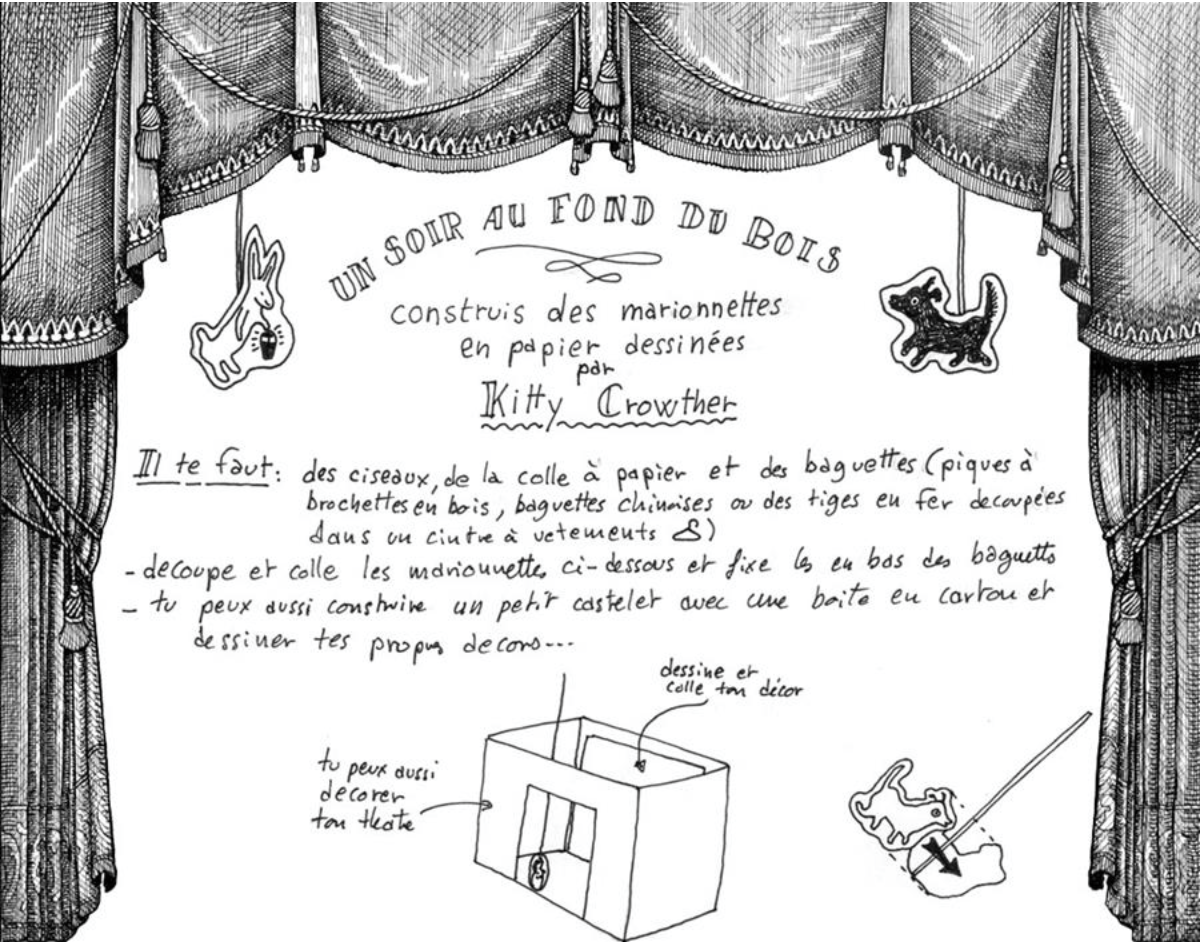 UN SOIR AU FOND DU BOIS
construis des marionnettes
en papier dessinées
par
Kitty Crowther
Il te faut: des ciseaux, de la colle à papier et des baguettes (piques à
brochettes en bois, baguettes chinoises ou des tiges en fer decoupées
dans un cintre à vetements)
- decoupe et colle les marionnettes ci-dessous et fixe les en bas des baguettes
- tu peux aussi construire un petit castelet avec une boite en carton et
dessiner tes propres decors...
dessine et
colle ton décor
tu peux aussi
decorer
ton theatre